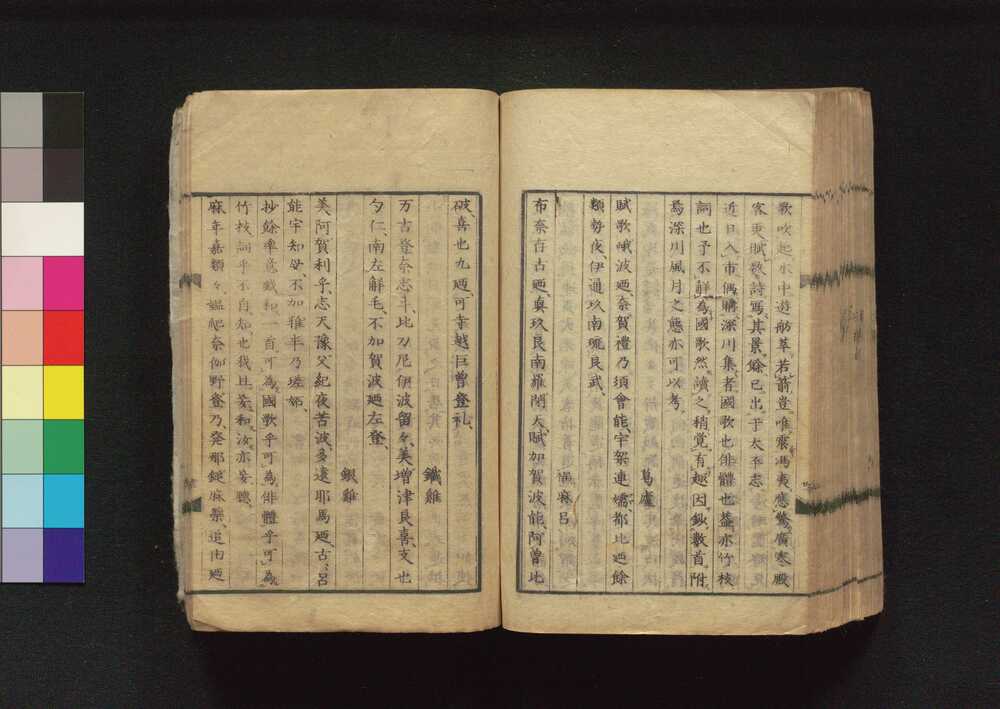 歌吹起水中遊舫萃若前登唯震馮夷應驚廣寒殿
客更賦數詩寫其景餘已出于太平志
近日入市偶購深川集者國歌也俳體也蓋亦竹枝
詞也予不解為國歌然讀之稍覚有趣因鈔數首附
焉深川風月之態亦可以考
葛廬
賦歌峨波廼奈賀禮乃須會能宇架連嬬都比廼餘
類勢夜伊通玖南琉良武
麻呂
布奈百古廼奥玖良南羅閇天賦加賀波能阿曽比
破喜也九廼可寺越巨曽登礼
鐵雞
万古登奈志斗比刀尼伊波留々美増津良喜支也
夕仁南左解毛不加賀波廼左登
銀雞
美阿賀利乎志天豫父紀夜苦波多遠耶馬廼古呂
能宇知毋不加雅半乃
抄餘率意戲和一首可為國歌乎可為俳體乎可為
竹枝詞乎不自知也我且妄和汝亦妄聴
麻年嘉類々奈伽野登乃発那麻樂追由廼